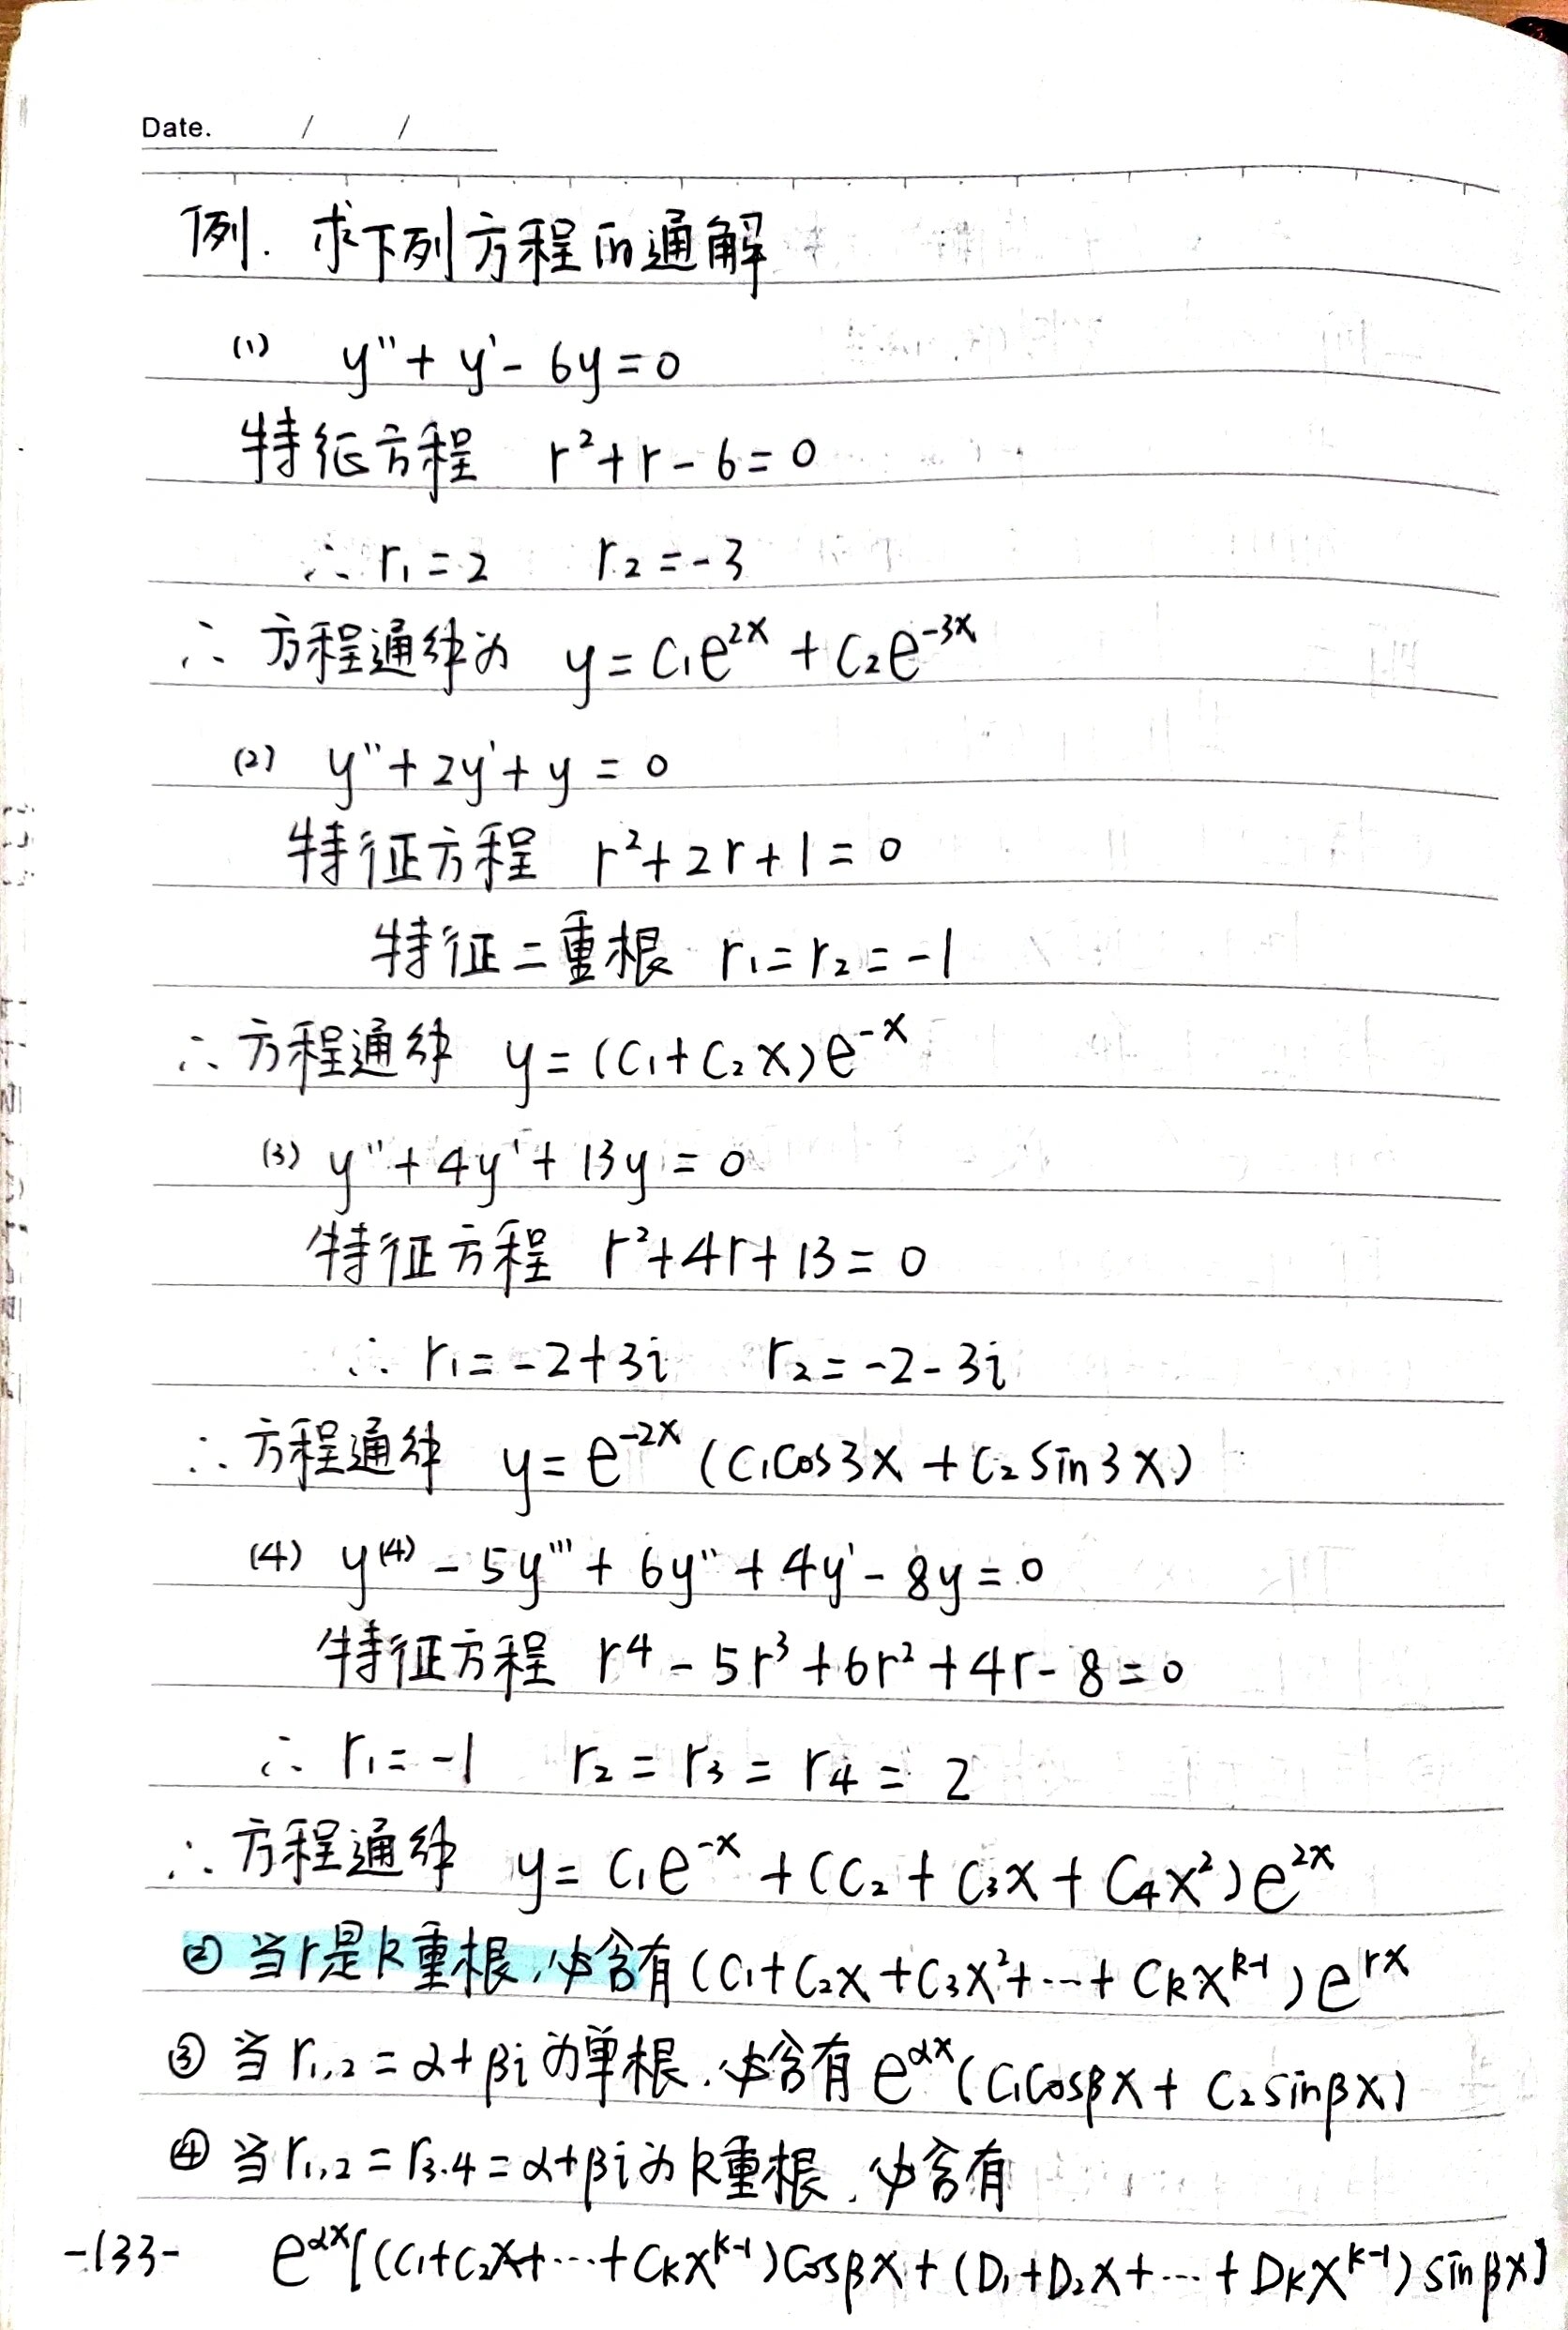 Date. / /
例. 求下列方程的通解
(1) y''+y'-6y=0
特征方程 r²+r-6=0
∴ r₁=2 r₂=-3
∴ 方程通解为 y=C₁e^{2x}+C₂e^{-3x}
(2) y''+2y'+y=0
特征方程 r²+2r+1=0
特征二重根 r₁=r₂=-1
∴ 方程通解 y=(C₁+C₂x)e^{-x}
(3) y''+4y'+13y=0
特征方程 r²+4r+13=0
∴ r₁=-2+3i r₂=-2-3i
∴ 方程通解 y=e^{-2x}(C₁cos3x+C₂sin3x)
(4) y⁽⁴⁾-5y'''+6y''+4y'-8y=0
特征方程 r⁴-5r³+6r²+4r-8=0
∴ r₁=-1 r₂=r₃=r₄=2
∴ 方程通解 y=C₁e^{-x}+(C₂+C₃x+C₄x²)e^{2x}
② 当r是k重根,必含有(C₁+C₂x+C₃x²+…+Cₖx^{k-1})e^{rx}
③ 当r₁,₂=α+βi为单根,必含有e^{αx}(C₁cosβx+C₂sinβx)
④ 当r₁,₂=r₃.₄=α+βi为k重根,必含有
-133- e^{αx}[(C₁+C₂x+…+Cₖx^{k-1})cosβx+(D₁+D₂x+…+Dₖx^{k-1})sinβx]